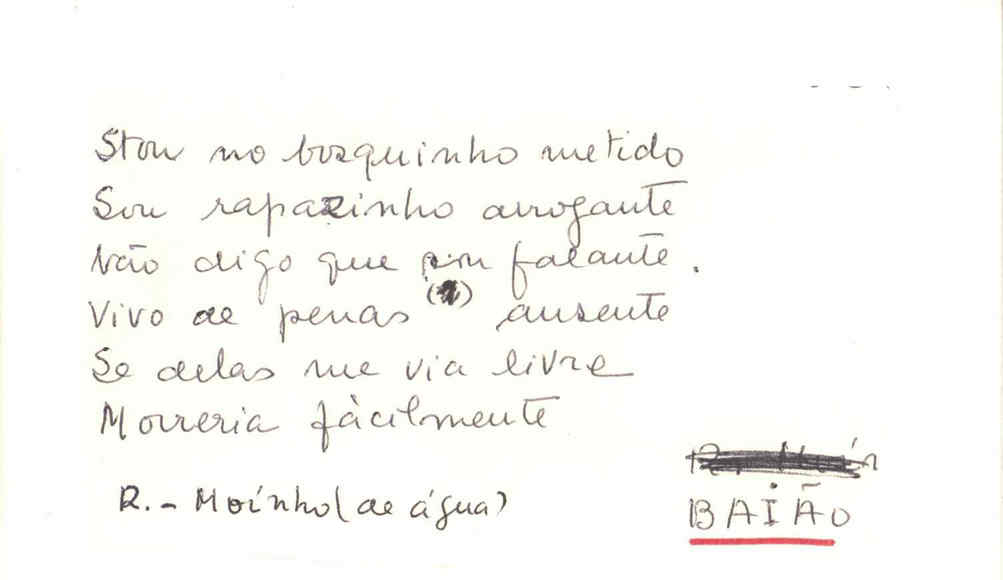 Stou no bosquinho metido
Sou rapazinho arrogante
Não digo que sou falante.
Vivo de penas ausente
Se delas me via livre
Morreria fàcilmente
R. - Moínho (de água)
BAIÃO